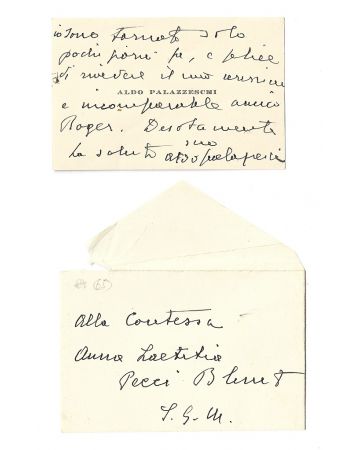 io sono tornato solo
pochi giorni fa, e felice
di rivedere il mio
ALDO PALAZZESCHI
e incomparabile amico
Roger. Devotamente
la saluto suo aldo palazzeschi
(65)
Alla Contessa
Anna Laetitia
Pecci Blunt
S. G. M.